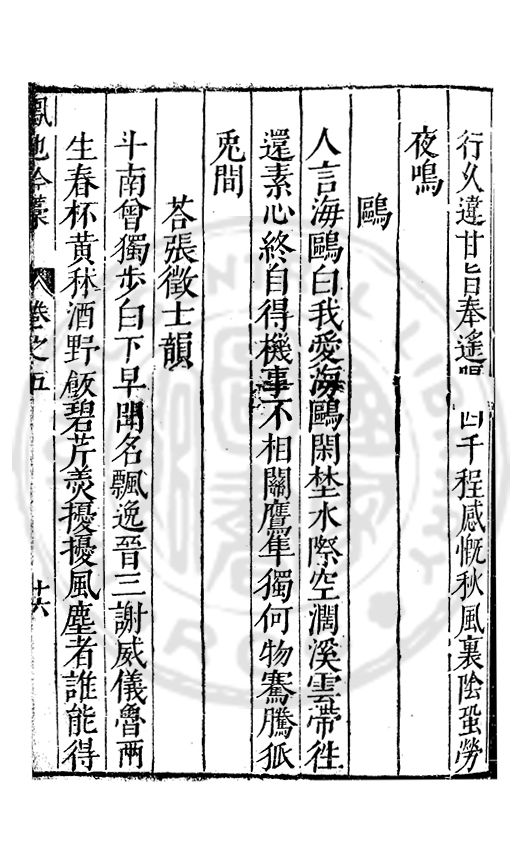 行久違甘旨奉遙四千程感慨秋風裏陰蛩勞
夜鳴
鷗
人言海鷗白我愛海鷗閑埜水際空濶溪雲帶徃
還素心終自得機事不相關鷹隼獨何物騫騰狐
兎間
荅張徵士韻
斗南曾獨步白下早聞名飄逸晉三謝威儀魯兩
生春杯黄秫酒野飯碧芹羮擾擾風塵者誰能得
鳳池吟藁 卷之五 十六